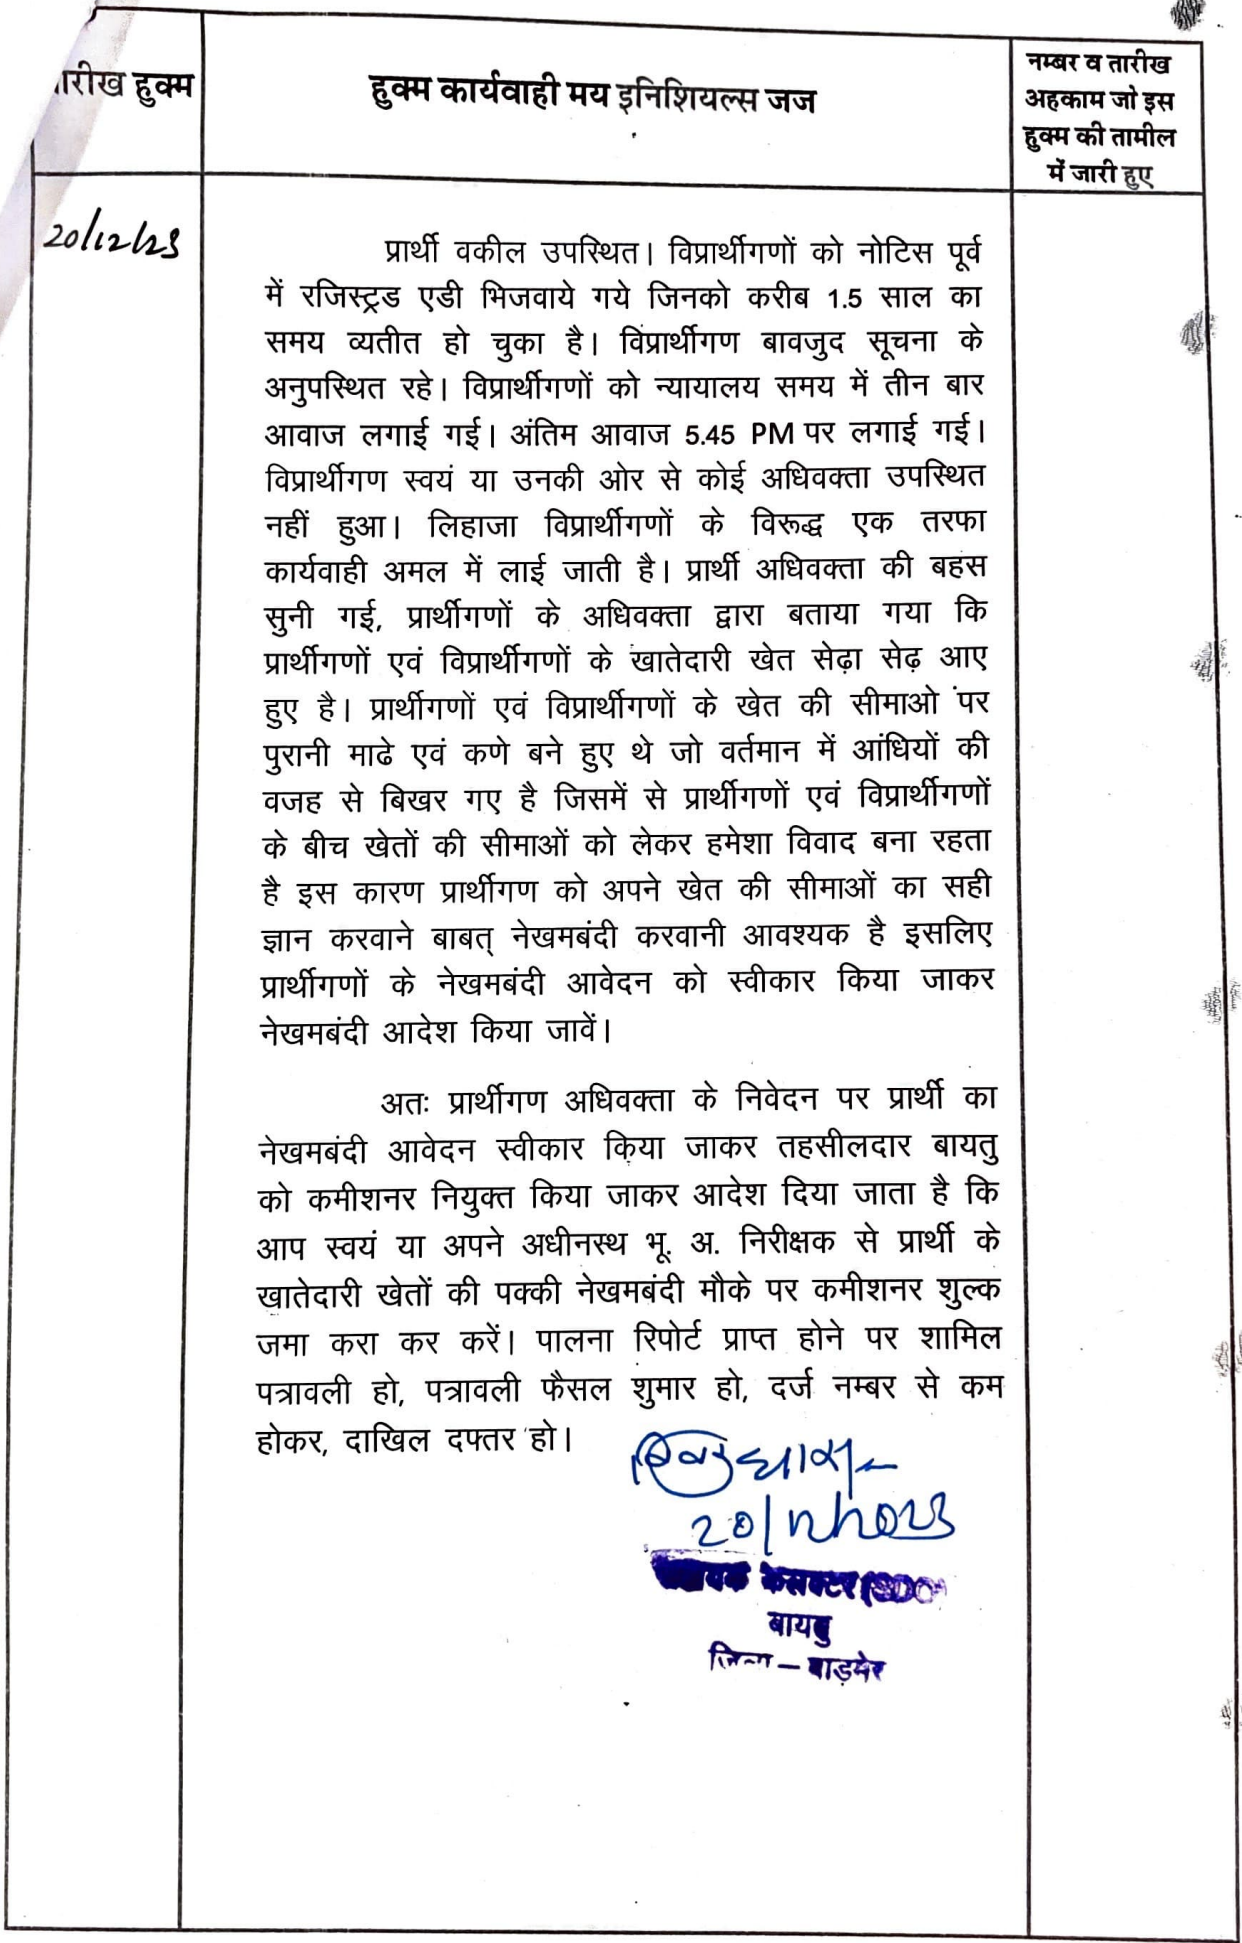 तारीख हुक्म
हुक्म कार्यवाही मय इनिशियल्स जज
नम्बर व तारीख
अहकाम जो इस
हुक्म की तामील
में जारी हुए
20/12/23
प्रार्थी वकील उपस्थित। विप्रार्थीगणों को नोटिस पूर्व
में रजिस्ट्रड एडी भिजवाये गये जिनको करीब 1.5 साल का
समय व्यतीत हो चुका है। विप्रार्थीगण बावजुद सूचना के
अनुपस्थित रहे। विप्रार्थीगणों को न्यायालय समय में तीन बार
आवाज लगाई गई। अंतिम आवाज 5.45 PM पर लगाई गई।
विप्रार्थीगण स्वयं या उनकी ओर से कोई अधिवक्ता उपस्थित
नहीं हुआ। लिहाजा विप्रार्थीगणों के विरूद्ध एक तरफा
कार्यवाही अमल में लाई जाती है। प्रार्थी अधिवक्ता की बहस
सुनी गई, प्रार्थीगणों के अधिवक्ता द्वारा बताया गया कि
प्रार्थीगणों एवं विप्रार्थीगणों के खातेदारी खेत सेढ़ा सेढ़ आए
हुए है। प्रार्थीगणों एवं विप्रार्थीगणों के खेत की सीमाओ पर
पुरानी माढे एवं कणे बने हुए थे जो वर्तमान में आंधियों की
वजह से बिखर गए है जिसमें से प्रार्थीगणों एवं विप्रार्थीगणों
के बीच खेतों की सीमाओं को लेकर हमेशा विवाद बना रहता
है इस कारण प्रार्थीगण को अपने खेत की सीमाओं का सही
ज्ञान करवाने बाबत् नेखमबंदी करवानी आवश्यक है इसलिए
प्रार्थीगणों के नेखमबंदी आवेदन को स्वीकार किया जाकर
नेखमबंदी आदेश किया जावें।
अतः प्रार्थीगण अधिवक्ता के निवेदन पर प्रार्थी का
नेखमबंदी आवेदन स्वीकार किया जाकर तहसीलदार बायतु
को कमीशनर नियुक्त किया जाकर आदेश दिया जाता है कि
आप स्वयं या अपने अधीनस्थ भू. अ. निरीक्षक से प्रार्थी के
खातेदारी खेतों की पक्की नेखमबंदी मौके पर कमीशनर शुल्क
जमा करा कर करें। पालना रिपोर्ट प्राप्त होने पर शामिल
पत्रावली हो, पत्रावली फैसल शुमार हो, दर्ज नम्बर से कम
होकर, दाखिल दफ्तर हो।
20/12/2023
कलक्टर (SDO)
बायतु
जिला – बाड़मेर